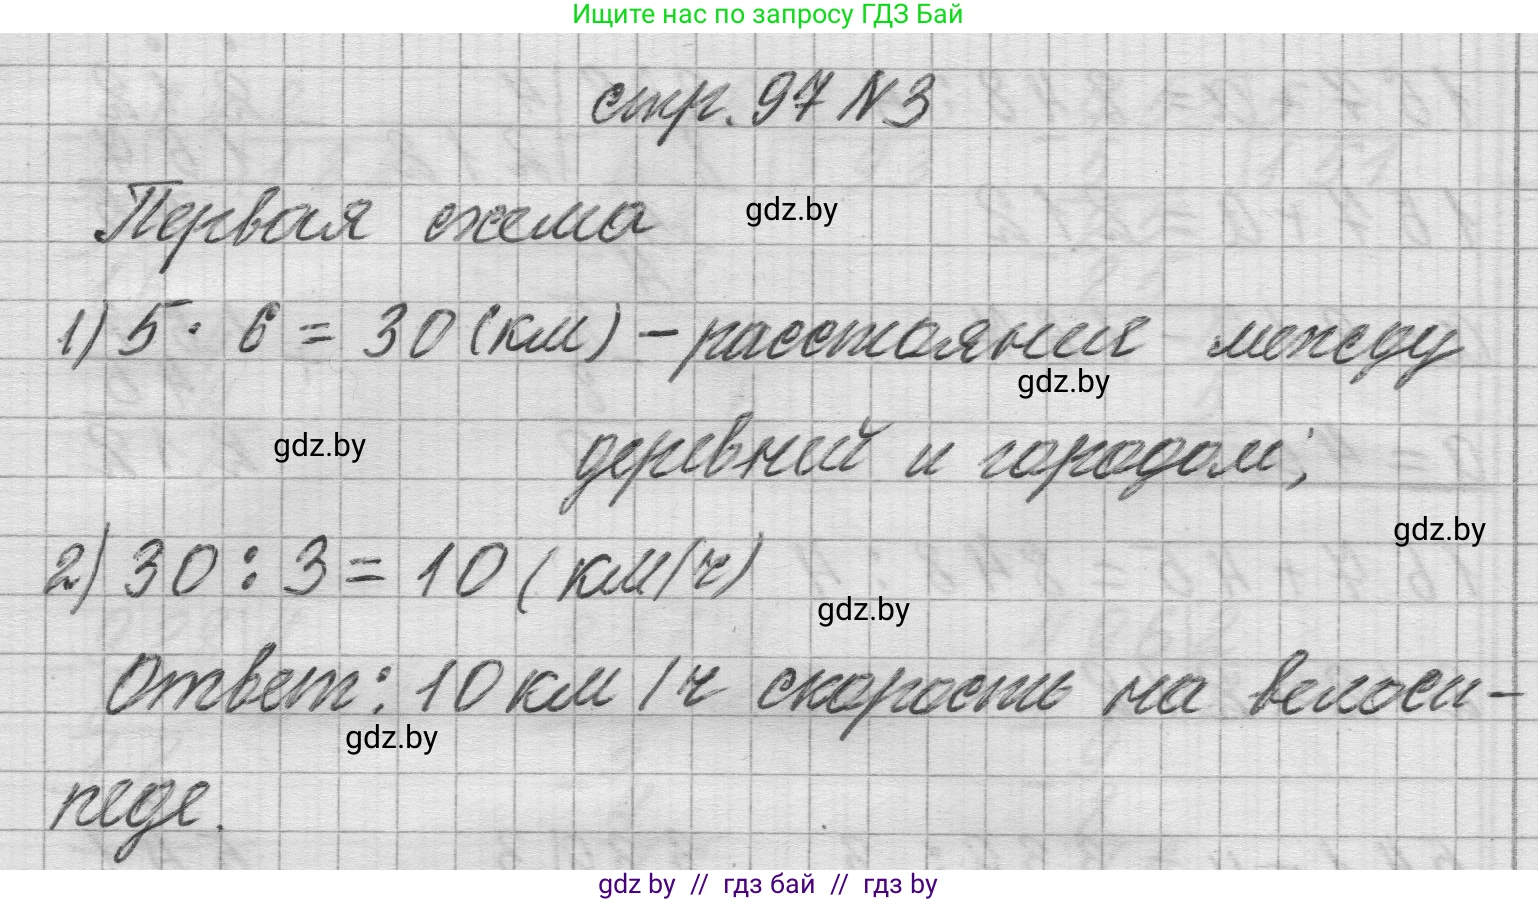 Ищите нас по запросу ГДЗ Бай
стр. 97 N3
Первая схема
gdz.by
1) 5 · 6 = 30 (км) – расстояния между
gdz.by
gdz.by
деревней и городом;
gdz.by
2) 30 : 3 = 10 (км/ч)
gdz.by
Ответ: 10 км/ч скорость на велоси-
gdz.by
педе.
gdz by // гдз бай // гдз by